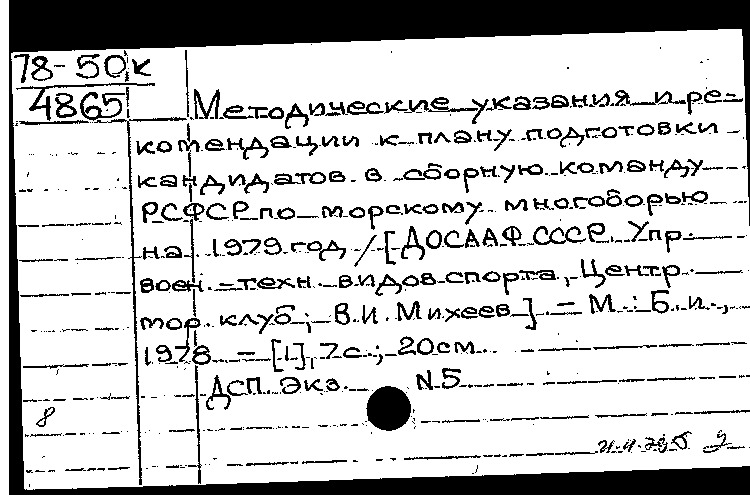 78-50к
4865
Методические указания и ре-
комендации к плану подготовки
кандидатов в сборную команду
РСФСР по морскому многоборью
на 1979 год / [ДОСААФ СССР, Упр.
воен.-техн. видов спорта, Центр.
мор. клуб; В.И. Михеев] - М.: Б.и.,
1978 - [1], 7с.; 20см.
ДСП. Экз. N5
8